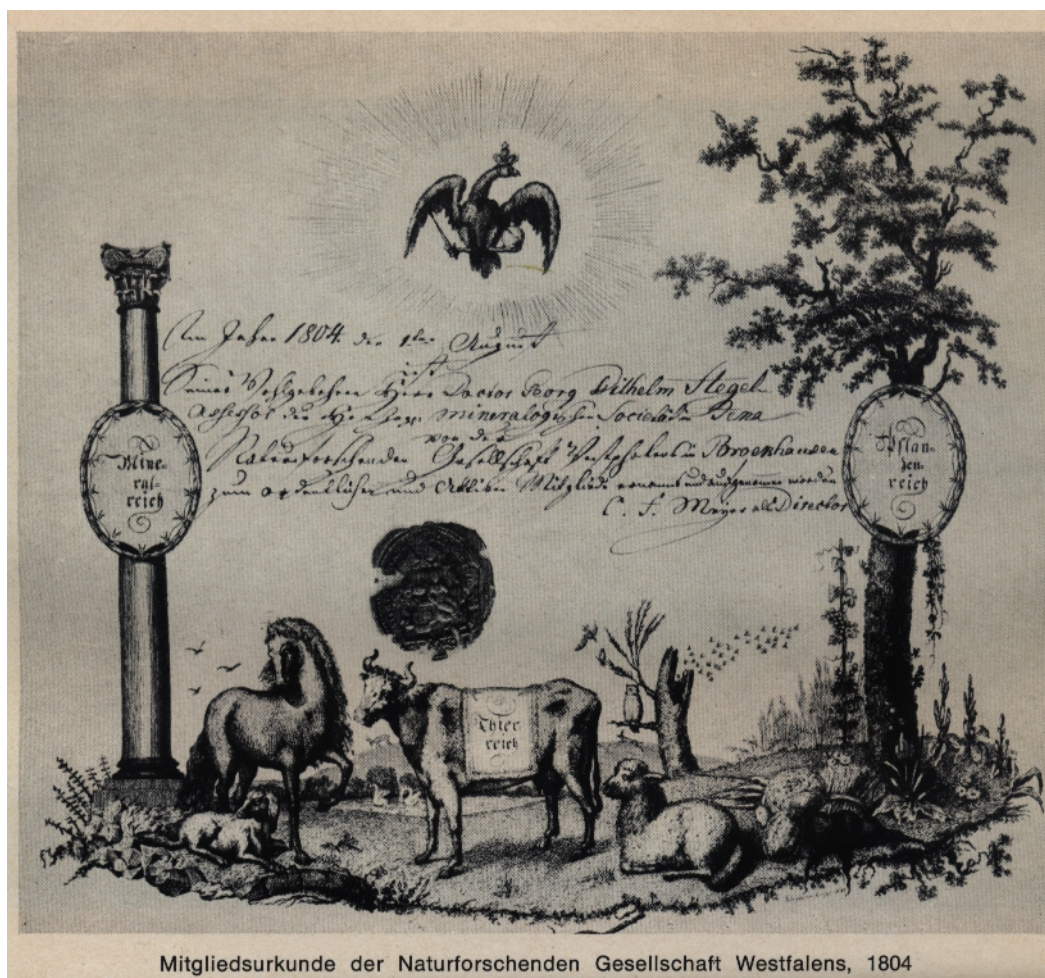 Im Jahre 1804. den 1ten August
ist
Seine Wohlgebohrn Herr Doctor Georg Wilhelm Stegel
der mineralogischen Societät in Jena
von der
Naturforschenden Gesellschaft Westphalens in Brockhausen
zum ordentlichen und Aktiven Mitgliede ernannt und aufgenommen worden
C. F. Meyer als Director
Mine-
ral-
reich
Pflan-
zen-
reich
Thier-
reich
Mitgliedsurkunde der Naturforschenden Gesellschaft Westfalens, 1804